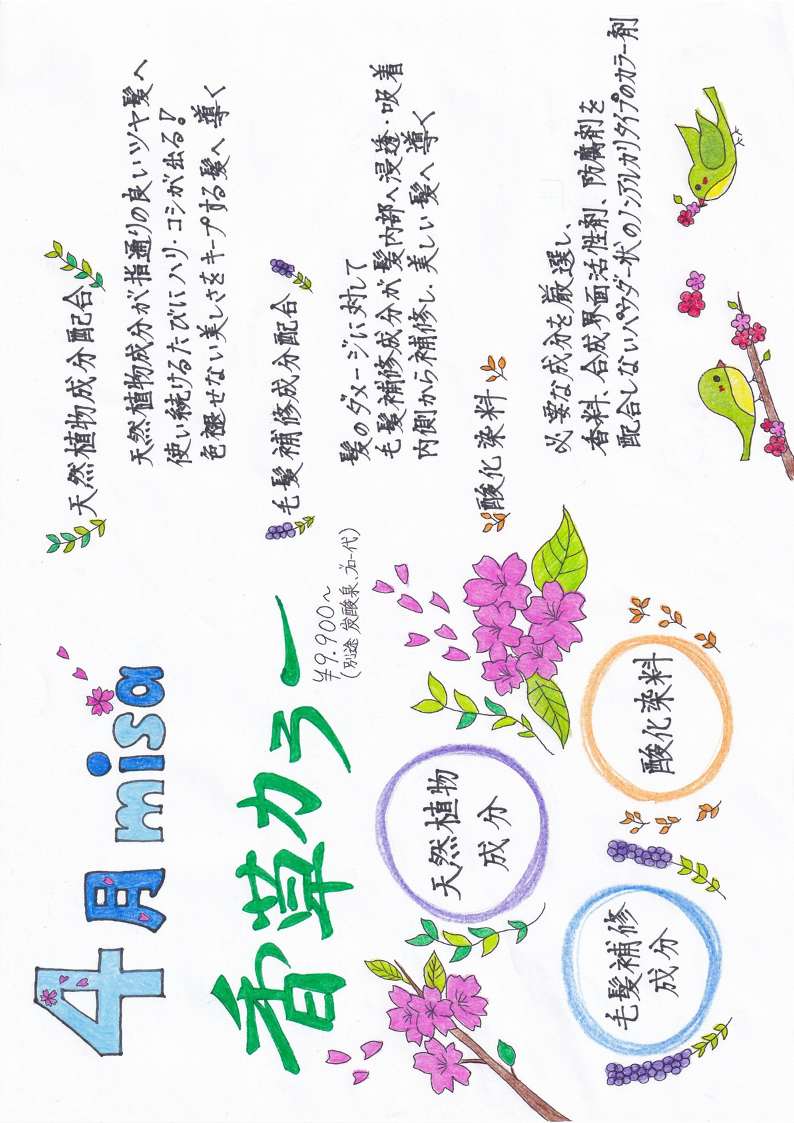 4月 misa
香草カラー
¥9.900～
(別途 炭酸泉、ブロー代)
天然植物
成分
毛髪補修
成分
酸化染料
天然植物成分配合
天然植物成分が指通りの良いツヤ髪へ
使い続けるたびにハリ・コシが出る!
色褪せない美しさをキープする髪へ導く
毛髪補修成分配合
髪のダメージに対して
毛髪補修成分が髪内部へ浸透・吸着
内側から補修し、美しい髪へ導く
酸化染料
必要な成分を厳選し、
香料、合成界面活性剤、防腐剤を
配合しないパウダー状のノンアルカリタイプのカラー剤